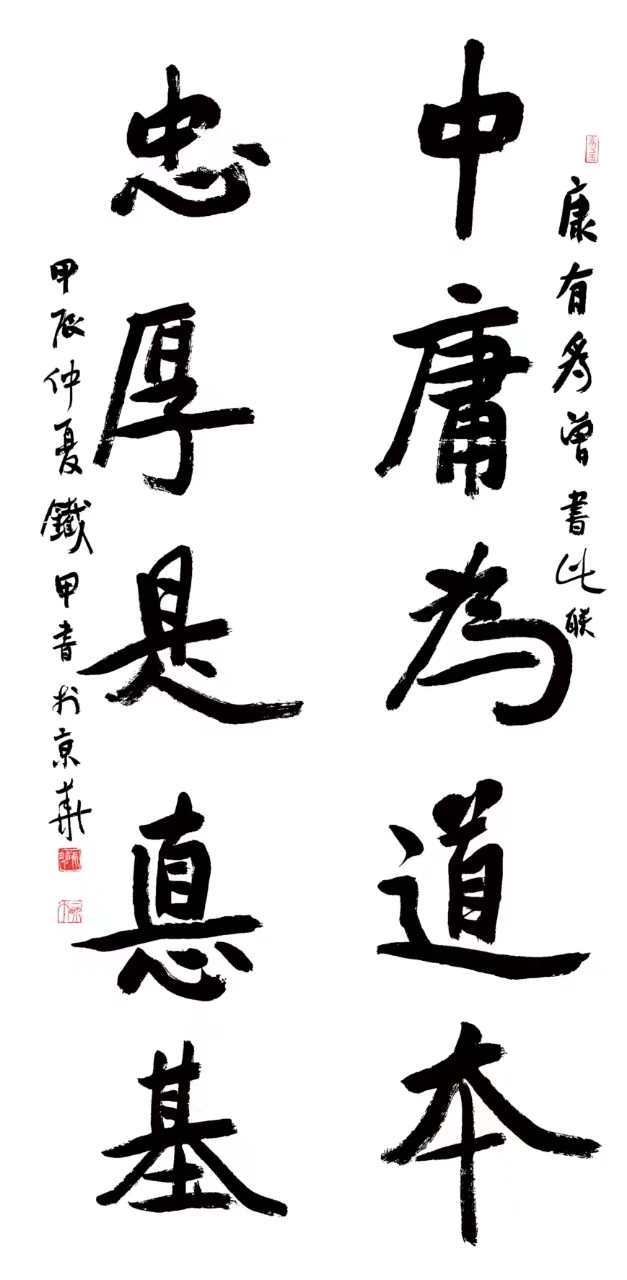 康有為曾書此联
中庸為道本
忠厚是惪基
甲辰仲夏鐵甲書於京華